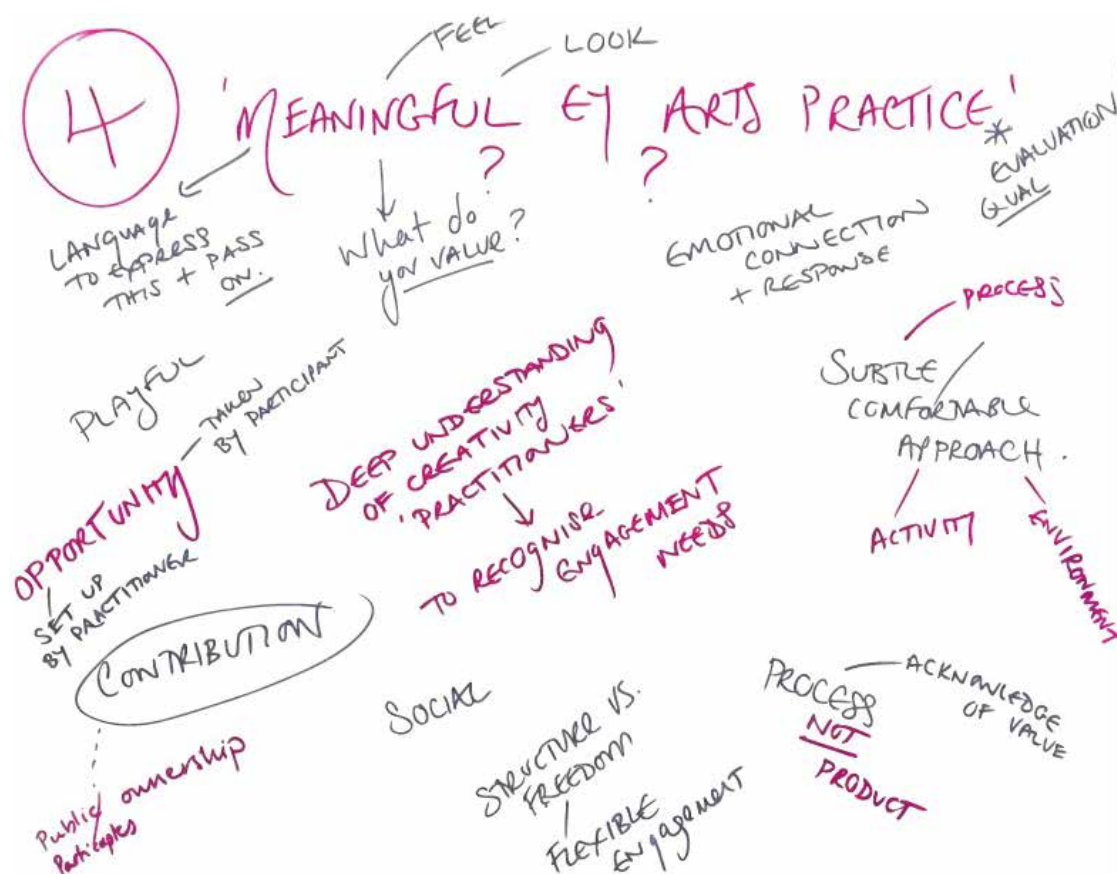 FEEL
LOOK
4
'MEANINGFUL EY ARTS PRACTICE'
? ?
*
EVALUATION
QUAL
LANGUAGE
TO EXPRESS
THIS + PASS
ON.
What do
you VALUE?
EMOTIONAL
CONNECTION
+ RESPONSE
PROCESS
SUBTLE
COMFORTABLE
APPROACH.
ACTIVITY
ENVIRONMENT
PLAYFUL
TAKEN
BY PARTICIPANT
OPPORTUNITY
SET UP
BY PRACTITIONER
DEEP UNDERSTANDING
OF CREATIVITY
'PRACTITIONERS'
TO RECOGNISE
ENGAGEMENT
NEEDS
CONTRIBUTION
Public ownership
SOCIAL
STRUCTURE VS.
FREEDOM
FLEXIBLE
ENGAGEMENT
PROCESS
NOT
PRODUCT
ACKNOWLEDGE
OF VALUE